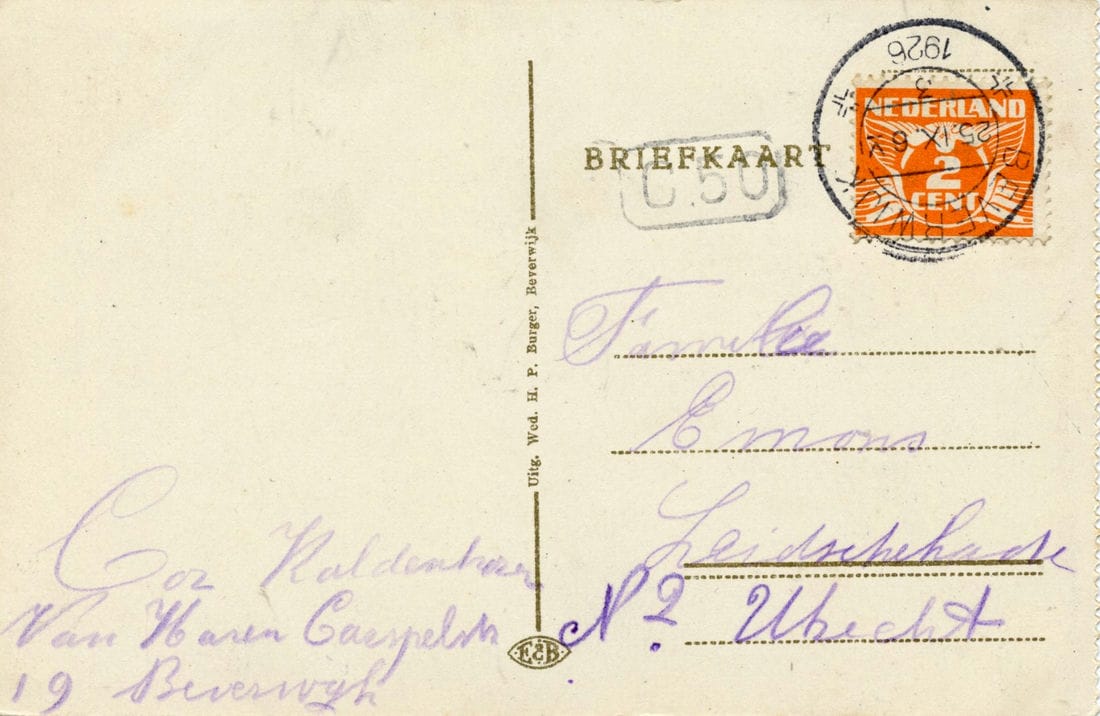 BRIEFKAART
C.50
NEDERLAND
2
CENT
BEVERWIJK
25.IX.6
3
1926
Uitg. Wed. H. P. Burger, Beverwijk
Familie
Emons
Leidschekade
Nº 2 Utrecht
Cor
Van Haren Caespelstr
19 Beverwyk
E&B